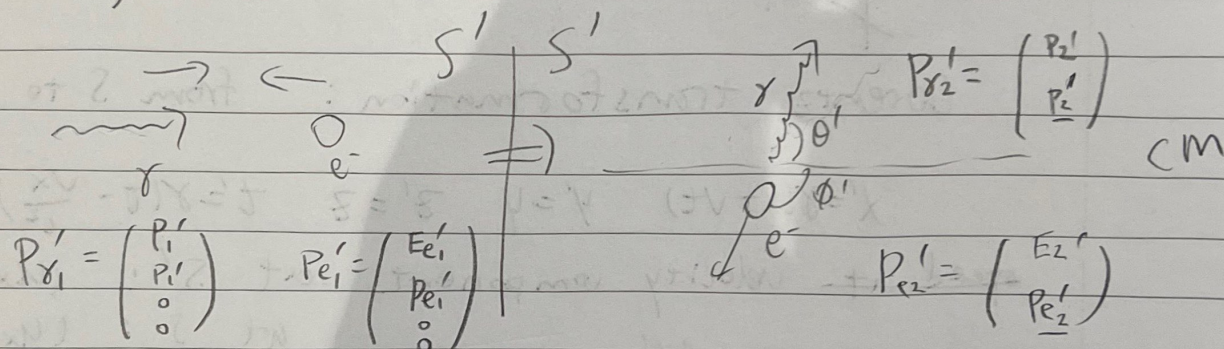 S' S'
γ e⁻ ⇒ γ θ' Pγ₂' = (P₂' P₂') CM
e⁻ φ'
Pγ₁' = (P₁' P₁' 0 0) Pe₁' = (Ee₁' Pe₁' 0 0) Pe₂' = (E₂' Pe₂')